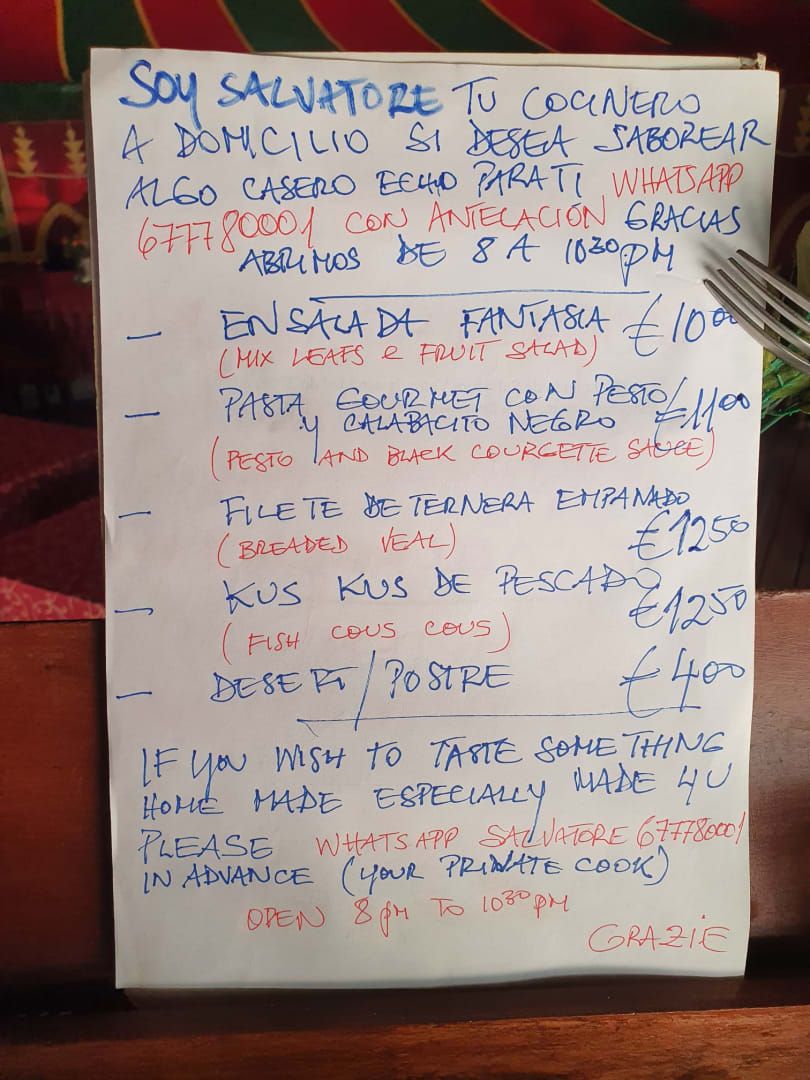 SOY SALVATORE TU COCINERO
A DOMICILIO SI DESEA SABOREAR
ALGO CASERO ECHO PARA TI WHATSAPP
677780001 CON ANTELACIÓN GRACIAS
ABRIMOS DE 8 A 10³⁰ PM
— ENSALADA FANTASIA €10⁰⁰
(MIX LEAFS e FRUIT SALAD)
— PASTA GOURMET CON PESTO/ €11⁰⁰
y CALABACITO NEGRO
(PESTO AND BLACK COURGETTE SAUCE)
— FILETE DE TERNERA EMPANADO
(BREADED VEAL) €12⁵⁰
— KUS KUS DE PESCADO €12⁵⁰
(FISH COUS COUS)
— DESERT/POSTRE €4⁰⁰
IF YOU WISH TO TASTE SOMETHING
HOME MADE ESPECIALLY MADE 4U
PLEASE WHATSAPP SALVATORE 677780001
IN ADVANCE (YOUR PRIVATE COOK)
OPEN 8 PM TO 10³⁰ PM
GRAZIE